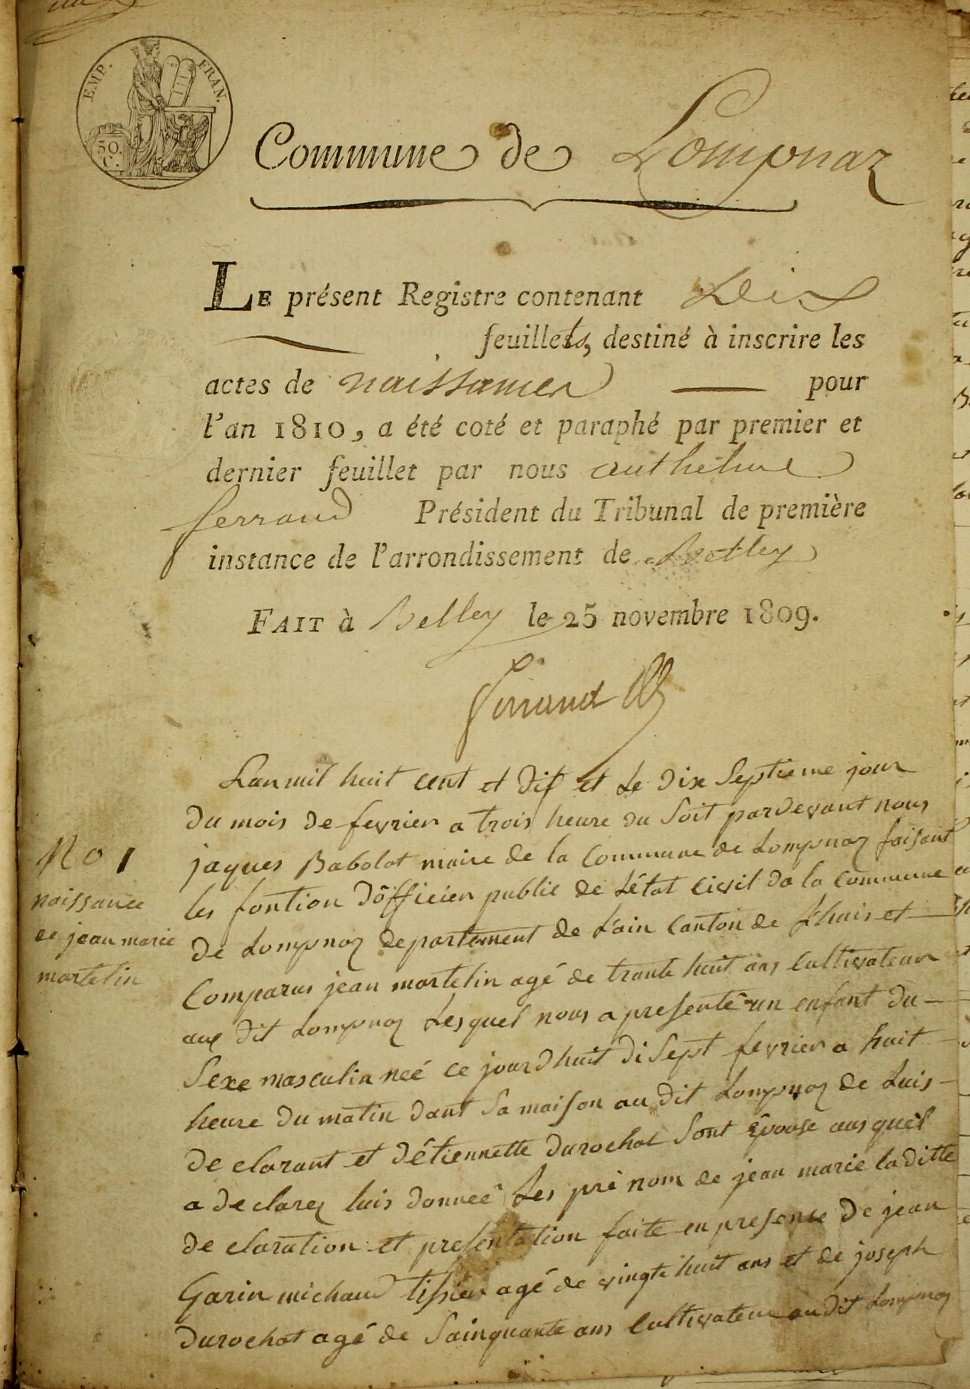 EMP. FRAN.
50. C.
Commune de Lompnaz
LE présent Registre contenant Dix
feuillets, destiné à inscrire les
actes de naissances pour
l'an 1810, a été coté et paraphé par premier et
dernier feuillet par nous anthelme
ferrand Président du Tribunal de première
instance de l'arrondissement de Belley
FAIT à Belley le 25 novembre 1809.
ferrand
Lan mil huit cent et dix et Le Dix Septieme jour
Du mois de fevrier a trois heure du Soit pardevant nous
No 1
jaques Babolat maire de la Commune de Lompnaz faisant
naissance
les fontion D'ôfficier publie de L'état Civil da la Commune
de jean marie
de Lompnaz departement de Lain Canton de Lhuis et
martelin
Comparus jean martelin agé de trante huit ans Cultivateur
aux dit Lompnaz Lesquel nous a presenté un enfant du
Sexe masculin neé ce jourdhuit Di Sept fevrier a huit
heure du matin dant Sa maison audit Lompnaz de Luis
de clarant et détiennette Durochat Sont Epoose ausquel
a declarez luis donneé Les pri nom de jean marie laditte
de claration et presentation faite en presence De jean
Garin michaud tissier agé de vingte huit ans et de joseph
Durochat agé de Sainquante ans Cultivateur audit Lompnaz